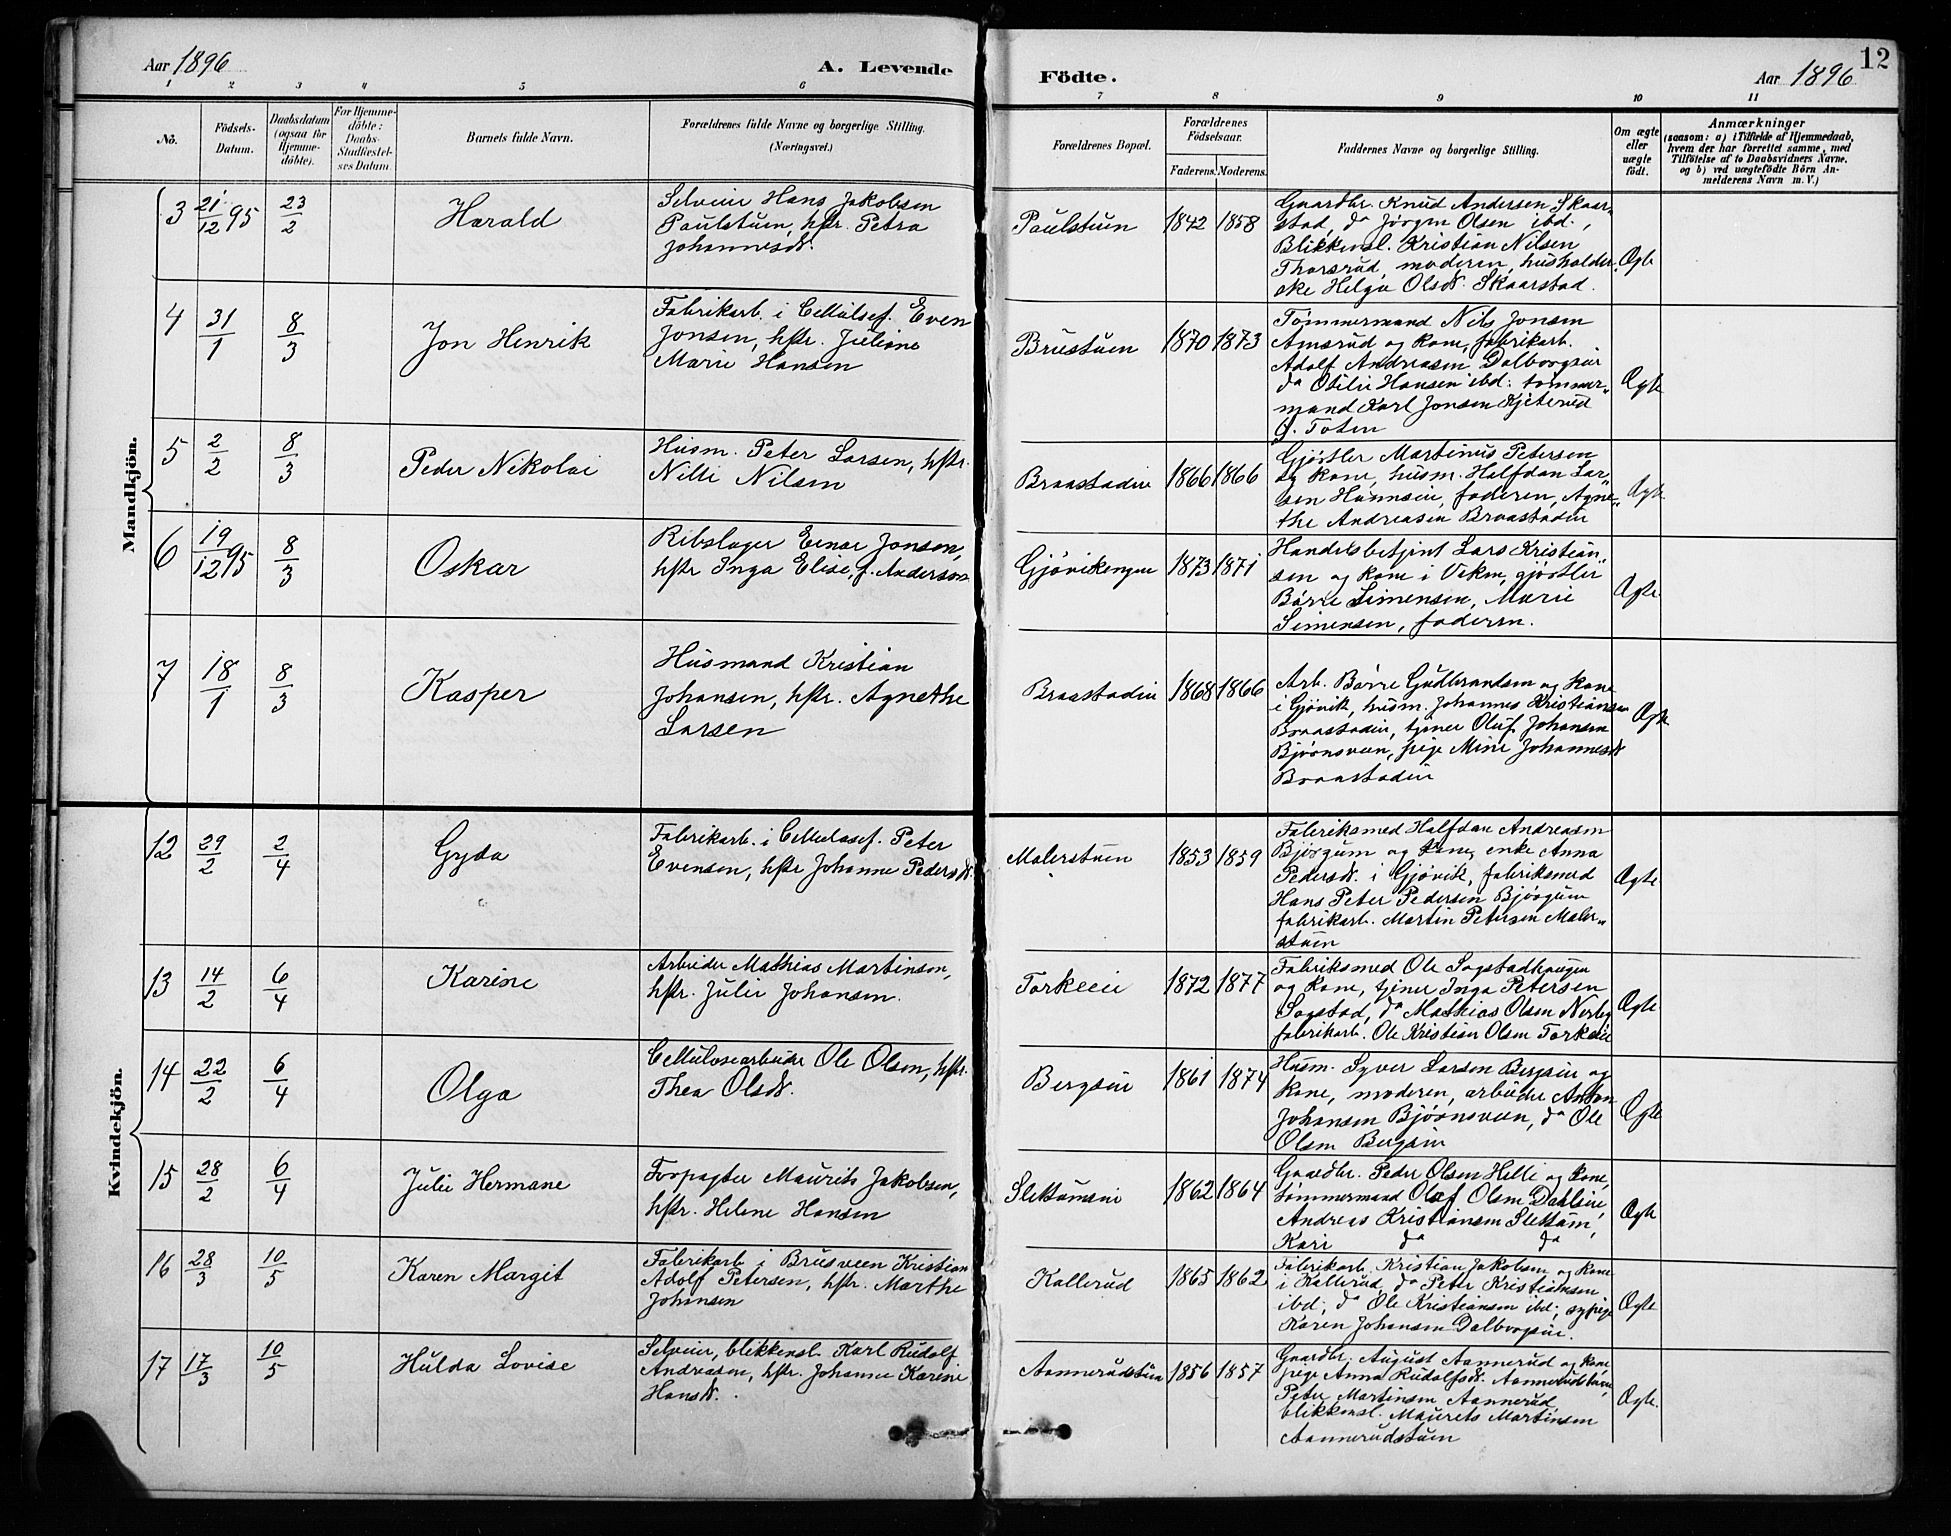 12
Aar 1896
A. Levende
Födte.
Aar 1896
1 2 3 4 5 6 7 8 9 10 11
No.
Födsels-
Datum.
Daabsdatum
(ogsaa for
Hjemme-
döbte).
For Hjemme-
döbte:
Daabs-
Stadfæstel-
ses Datum.
Barnets fulde Navn.
Forældrenes fulde Navne og borgerlige Stilling.
(Næringsvei.)
Forældrenes Bopæl.
Forældrenes
Födselsaar.
Faderens. Moderens.
Faddernes Navne og borgerlige Stilling.
Om ægte
eller
uægte
födt.
Anmærkninger
(saasom: a) i Tilfælde af Hjemmedaab,
hvem der har forrettet samme, med
Tilföielse af to Daabsvidners Navne,
og b) ved uægtefödte Börn An-
melderens Navn m. V.)
Mandkjön.
3 21/12 95 23/2 Harald
Selveier Hans Jakobsen
Paulstuen, hstr. Petra
Johannesd.
Paulstuen 1842 1858
Gaardbr. Knud Andersen Skaar-
stad, do Jörgen Olsen ibd.,
Blikkensl. Kristian Nilsen
Thorsrud, moderen, husholder-
ske Helga Olsd. Skaarstad.
Ægte
4 31/1 8/3 Jon Henrik
Fabrikarb. i Cellulosef. Even
Jonsen, hstr. Juliane
Marie Hansen
Brustuen 1870 1873
Tømmermand Nils Jonsen
Amsrud og kone, fabrikarb.
Adolf Andreasen Dalborgsur
do Otilie Hansen ibd. tømmer-
mand Karl Jonsen Kjeterud
Ö. Toten
Ægte
5 2/2 8/3 Peder Nikolai
Husm. Peter Larsen, hstr.
Nilli Nilsen
Braastadeie 1866 1866
Gjørtler Martinus Petersen
og kone, husm. Halfdan Lar-
sen Hunnseie, faderen, Agne-
the Andreasen Braastadeie
Ægte
6 19/12 95 8/3 Oskar
Rebslager Einar Jonsen,
hstr Inga Elise, f. Anderson
Gjøvikengen 1873 1871
Handelsbetjent Lars Kristian-
sen og kone i Viken, gjørtler
Børre Simensen, Marie
Simensen, faderen.
Ægte.
7 18/1 8/3 Kasper
Husmand Kristian
Johansen, hstr. Agnethe
Larsen
Braastadeie 1868 1866
Arb. Børre Gudbrandsen og kone
i Gjøvik, husm. Johannes Kristiansen
Braastadeie, tjener Oluf Johansen
Bjørnsveen, pige Mine Johannesd
Braastadeie
Ægte
Kvindekjön.
12 29/2 2/4 Gyda
Fabrikarb. i Cellulosef. Peter
Evensen, hstr Johanne Pedersd.
Malerstuen 1853 1859
Fabriksmed Halfdan Andreasen
Bjørgum og kone, enke Anna
Pedersd. i Gjøvik, fabriksmed
Hans Peter Pedersen Bjørgum
fabrikarb. Martin Petersen Maler-
stuen
Ægte
13 14/2 6/4 Karine
Arbeider Mathias Martinson,
hstr. Julie Johansen.
Torkeeie 1872 1877
Fabriksmed Ole Sogstadhaugen
og kone, tjener Inga Petersen
Sogstad, do Mathias Olsen Nerby
fabrikarb. Ole Kristian Olsen Torkeeie
Ægte
14 22/2 6/4 Olga
Cellulosearbeider Ole Olsen, hstr.
Thea Olsd.
Bergseie 1861 1874
Husm. Syver Larsen Bergseie og
kone, moderen, arbeider Anton
Johansen Bjørnsveen, do Ole
Olsen Bergseie
Ægte
15 28/2 6/4 Julie Hermane
Forpagter Maurits Jakobsen,
hstr. Helene Hansen
Slettumeie 1862 1864
Gaardbr. Peder Olsen Hilli og kone,
tømmermand Olaf Olsen Dahlseie,
Andreas Kristiansen Slettum,
Kari do do
Ægte
16 28/3 10/5 Karen Margit
Fabrikarb i Brusveen Kristian
Adolf Petersen, hstr. Marthe
Johansen
Kallerud 1865 1862
Fabrikarb. Kristian Jakobsen og kone
i Kallerud, do Peter Kristiansen
ibd., do Ole Kristiansen ibd., sypige
Karen Johansen Dalborgseie.
Ægte
17 17/3 10/5 Hulda Lovise
Selveier, blikkensl. Karl Rudolf
Andreasen, hstr. Johanne Karine
Hansd.
Aannerudstuen 1856 1857
Gaardbr. August Aannerud og kone
pige Anna Rudolfsd. Aannerudstuen,
Peter Martinsen Aannerud,
blikkensl. Maurits Martinsen
Aannerudstuen
Ægte.